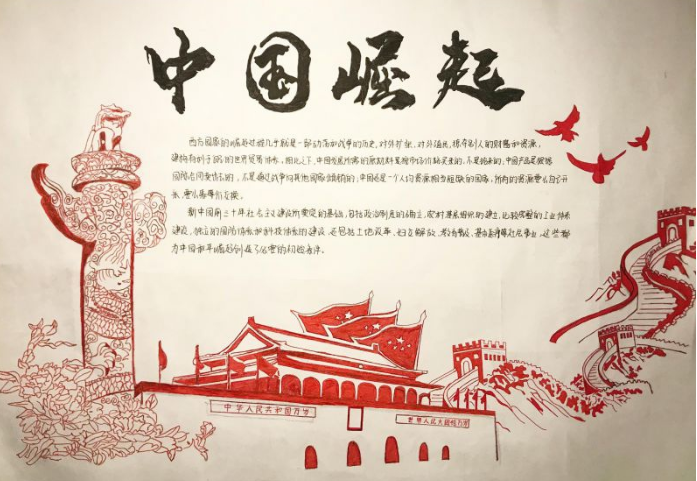 中国崛起
西方国家的崛起过程几乎就是一部动荡和战争的历史,对外扩张,对外殖民,掠夺别人的财富和资源,
建构有利于的世界贸易体系,相比之下,中国发展所需的原材料是按市场价格买来的,不是抢来的,中国产品是按照
国际合同卖出去的,不是通过战争向其他国家倾销的;中国是一个人均资源相当短缺的国家,所有的资源要么自己开
新中国前三十年社会主义建设所奠定的基础,包括政治制度的确立,农村基层组织的建立,比较完整的工业体系
建设,独立的国防体系和科技体系的建设,还包括土地改革,妇女解放,教育普及,基础卫生事业,这些都
为中国和平崛起创造了必要的初始条件。
中华人民共和国万岁
世界人民大团结万岁